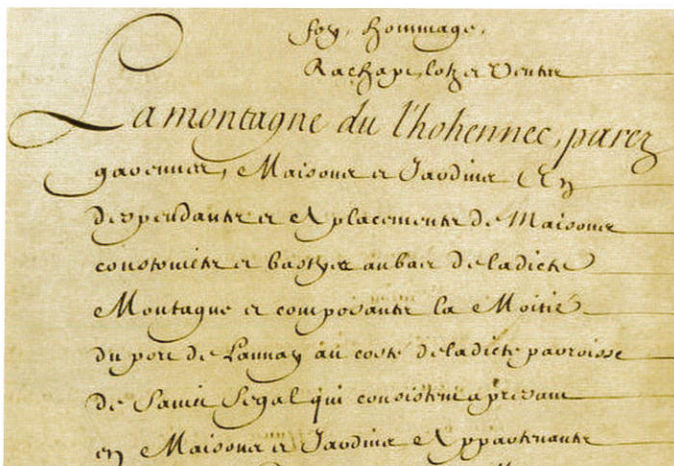 foy, hommage,
Rachapt, lotz et Ventes
La montagne du l'hohennec, parcz
garennes, Maisons et Jardins En
despendantz et Emplacementz de Maisons
construictes et basties au bas de ladicte
Montagne et composants la Moitié
du port de Launay au costé de ladicte parroisse
de Sainct Segal qui consistent a present
en Maisons et Jardins Appartenants